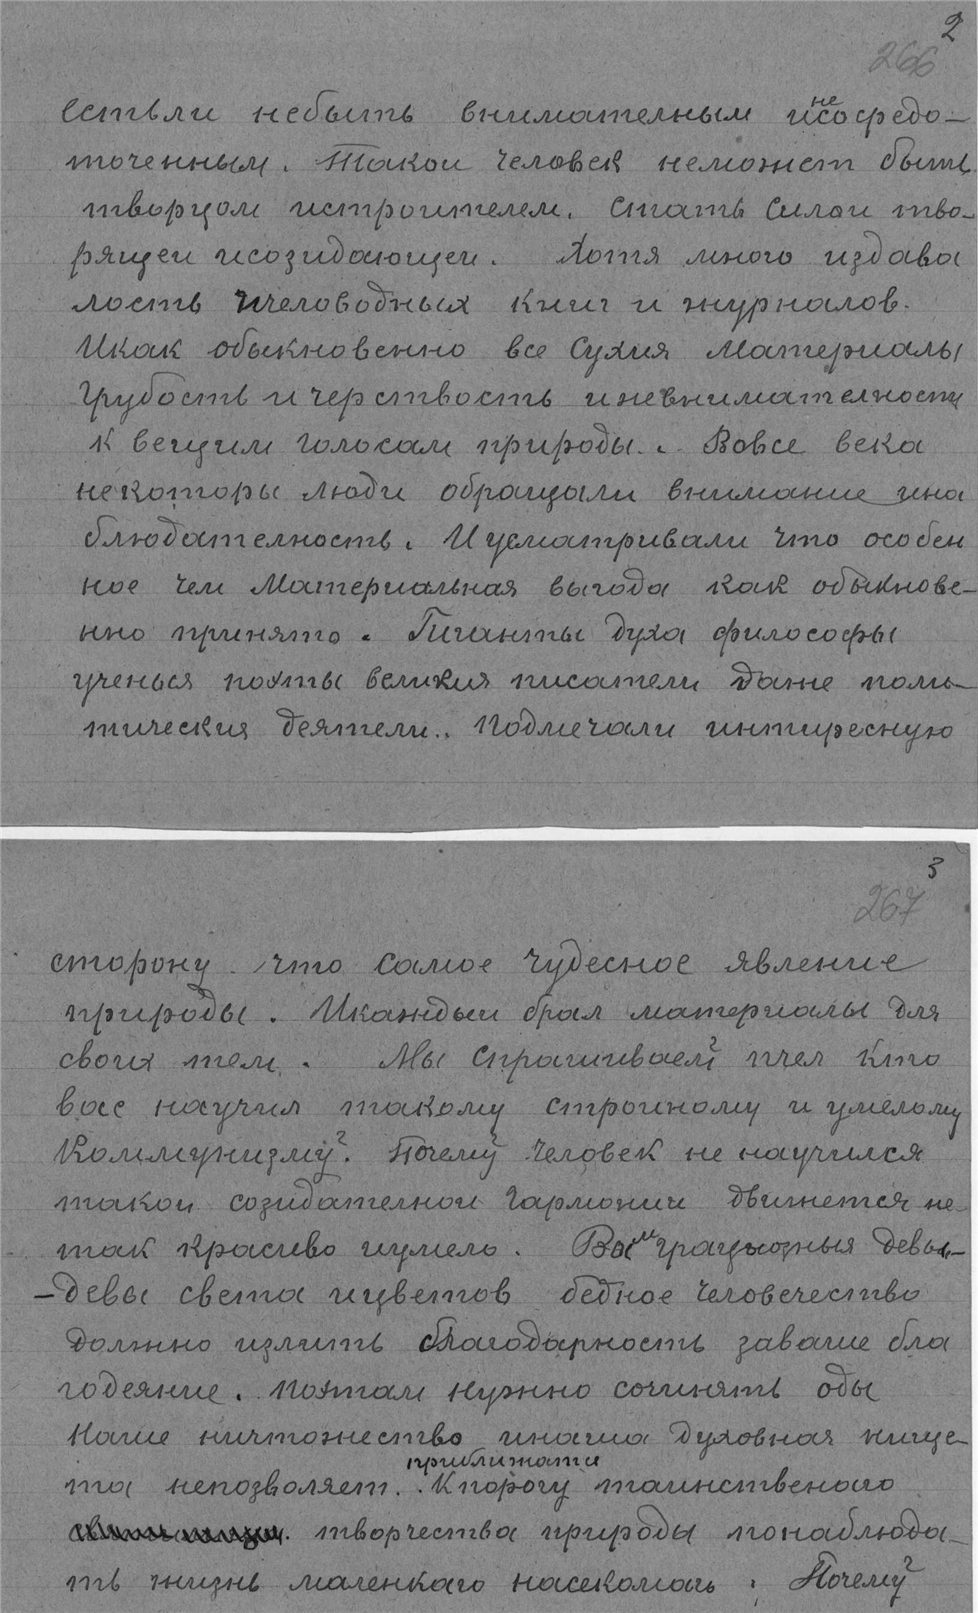 2
266
естьли небыть внимателным и не сосредо-
точенным. Такои человек неможет быть
творцом истроителем. Стать Силои тво-
рящеи исозидающеи. Хотя много издава
лость пчеловодных книг и журналов.
Икак обыкновенно все Сухия Материалы
Грубость и черствость иневнимателность
к вещим голосам природы. Вовсе века
некоторы люди обращали внимание ина
блюдателность. И усматривали что особен
ное чем Материальная выгода как обыкнове-
нно принято. Гиганты духа философы
ученыя поэты великия писатели даже поли-
тическия деятели.. Подмечали интиресную
3
267
сторону что самое чудесное явление
природы. Икаждыи брал материалы для
своих тем. Мы Спрашиваем? пчел Кто
вас научил такому строиному и умелому
Коммунизму?. Почему? Человек не научился
такои созидателнои гармонии движется не
так красиво иумело. Вам грациозныя девы-
-девы света ицветов бедное человечество
должно излить благодарность заваше бла
годеяние. Поэтам нужно сочинять оды
Наше ничтожество инаша духовная нище-
та непозволяет. приближатся К порогу таинственаго
творчества природы понаблюда-
ть жизнь маленкаго насекомаго. Почему?